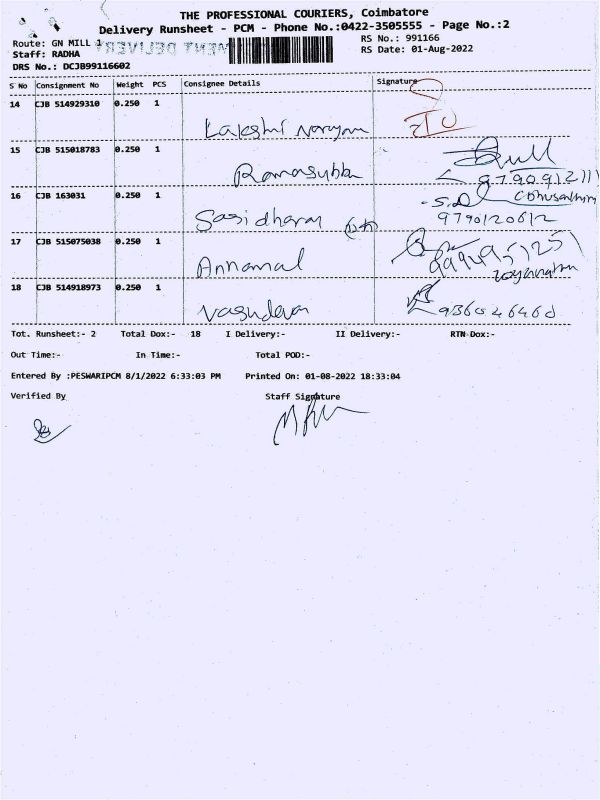 THE PROFESSIONAL COURIERS, Coimbatore
Delivery Runsheet - PCM - Phone No.:0422-3505555 - Page No.:2
Route: GN MILL 1
RS No.: 991166
Staff: RADHA
RS Date: 01-Aug-2022
DRS No.: DCJB99116602
S No Consignment No Weight PCS Consignee Details Signature
14 CJB 514929310 0.250 1 Lakshmi Narayan
15 CJB 515018783 0.250 1 Ramasubbu
16 CJB 163031 0.250 1 Sasidharan
9790120612
17 CJB 515075038 0.250 1 Annamal
18 CJB 514918973 0.250 1 Vasudevan 936046460
Tot. Runsheet:- 2 Total Dox:- 18 I Delivery:- II Delivery:- RTN Dox:-
Out Time:- In Time:- Total POD:-
Entered By :PESWARIPCM 8/1/2022 6:33:03 PM Printed On: 01-08-2022 18:33:04
Verified By Staff Signature